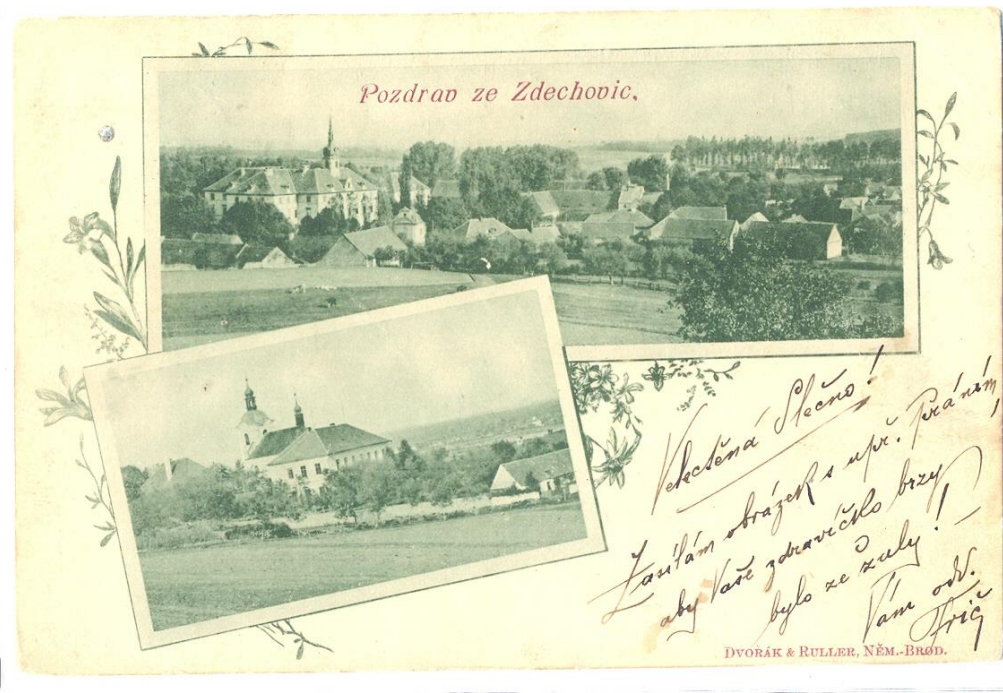 Pozdrav ze Zdechovic.
Velectěná Slečno!
Zasílám obrázek s upř. přáním,
aby Vaše zdravíčko brzy
bylo ze zuly!
Vám odd.
Frič
DVOŘÁK & RULLER, NĚM.-BROD.